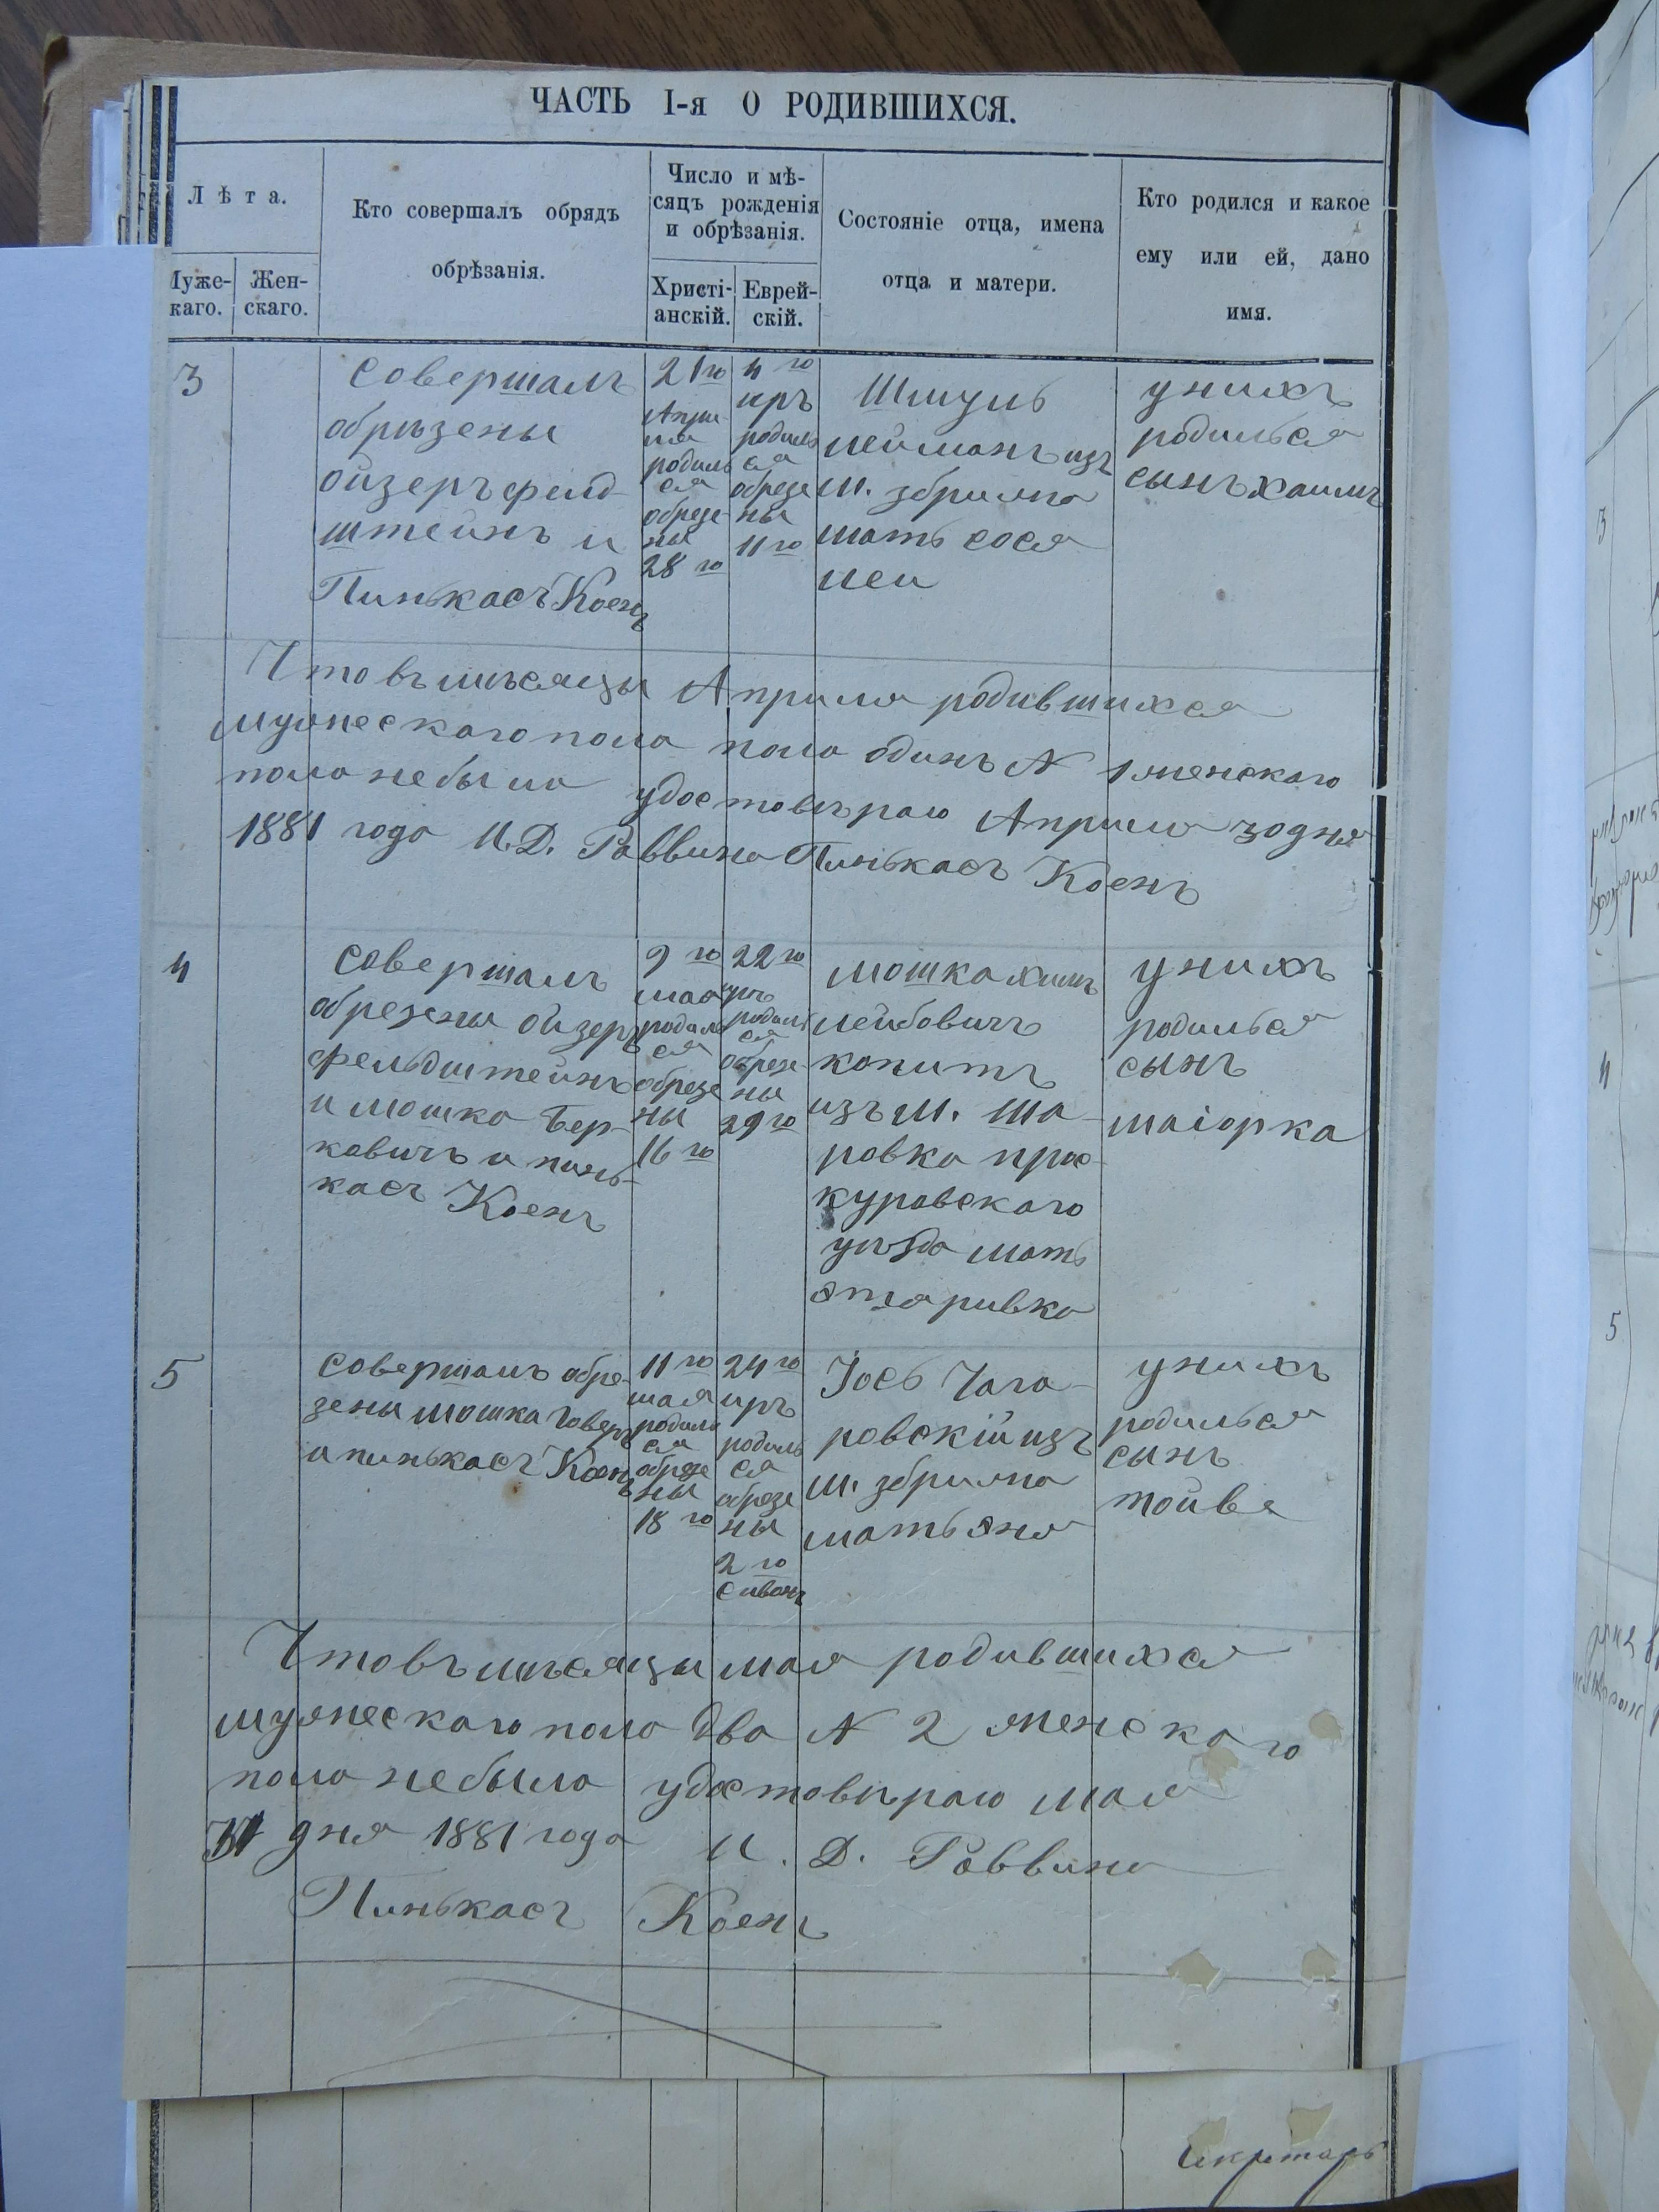 ЧАСТЬ I-я О РОДИВШИХСЯ.
Лѣта.
Муже-
каго.
Жен-
скаго.
Кто совершалъ обрядъ
обрѣзанія.
Число и мѣ-
сяцъ рожденія
и обрѣзанія.
Христі-
анскій.
Еврей-
скій.
Состояніе отца, имена
отца и матери.
Кто родился и какое
ему или ей, дано
имя.
3
совершалъ
обрѣзены
ойзеръ фелд-
штейнъ и
Пинькасъ Коенъ
21го
Апри-
ля
родиль
ся
обрезе-
ны
28го
4го
иръ
родиль
ся
обрезе
ны
11го
Шмуль
лейманъ изъ
м. збрижа
мать сося
леи
унихъ
родилься
сынъ хаимъ
Что въ мѣсяцы Апреля родившихся
мужескаго пола пола одинъ N 1 женскаго
пола небыла удостовѣраю Апреля 30 дня
1881 года И. Д. Раввина Пинькасъ Коенъ
4
совершалъ
обрезены ойзеръ
фельдштейнъ
и мошка Бер-
ковичъ и пинь-
касъ Коенъ
9го
мая
родиль
ся
обрезе
ны
16го
22го
иръ
родиль
ся
обрезе-
ны
29го
мошка хаимъ
лейбовичъ
копитъ
изъ м. ша-
ровка прос-
куровскаго
уѣзда мать
этя ривка
унихъ
родилься
сынъ
маіорка
5
совершалъ обре-
зены мошка
и пинькасъ Коенъ
11го
мая
родиль
ся
обрезе
ны
18го
24го
иръ
родиль
ся
обрезе
ны
2го
сиванъ
Іось Чага-
ровскій изъ
м. збрижа
мать эня
унихъ
родилься
сынъ
тойвя
Что въ мѣсяцы мая родившихся
мужескаго пола два N 2 женскаго
пола небыла удостовѣраю мая
31 дня 1881 года И. Д. Раввина
Пинькасъ Коенъ
Секретарь
3
4
5